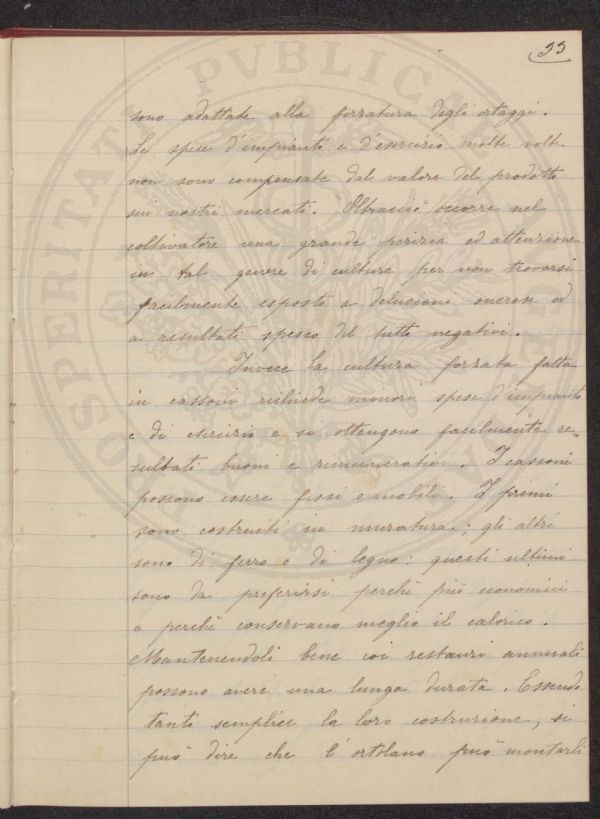 33
sono adattate alla forzatura degli ortaggi.
Le spese d'impianto e d'esercizio molte volte
non sono compensate dal valore del prodotto
sui nostri mercati. Oltracciò occorre nel
coltivatore una grande perizia ed attenzione
in tal genere di culture per non trovarsi
facilmente esposto a delusioni onerose ed
a resultati spesso del tutto negativi.
Invece la cultura forzata fatta
in cassoni richiede minori spese d'impianto
e di esercizio e si ottengono facilmente re-
sultati buoni e rimunerativi. I cassoni
possono essere fissi o mobili. I primi
sono costruiti in muratura; gli altri
sono di ferro o di legno: questi ultimi
sono da preferirsi perchè più economici
e perchè conservano meglio il calorico.
Mantenendoli bene coi restauri annuali
possono avere una lunga durata. Essendo
tanto semplice la loro costruzione, si
può dire che l'ortolano può montarli
PROSPERITATI PVBLICAE